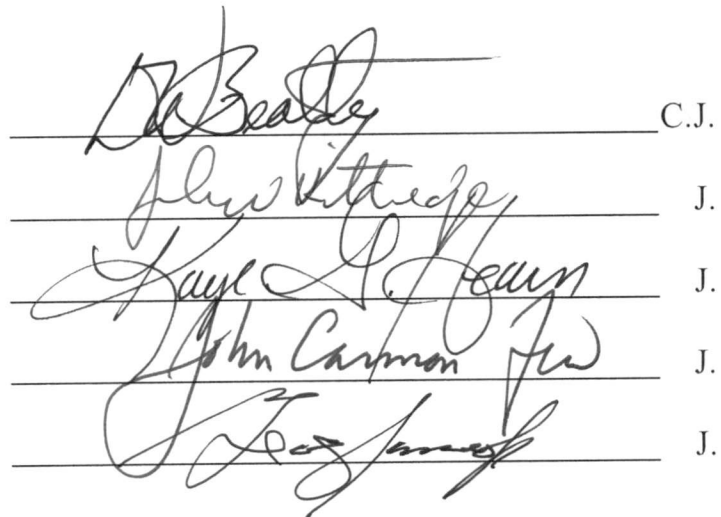 D Beatty C.J.
John Kittredge J.
Kaye G. Hearn J.
John Cannon Few J.
J.